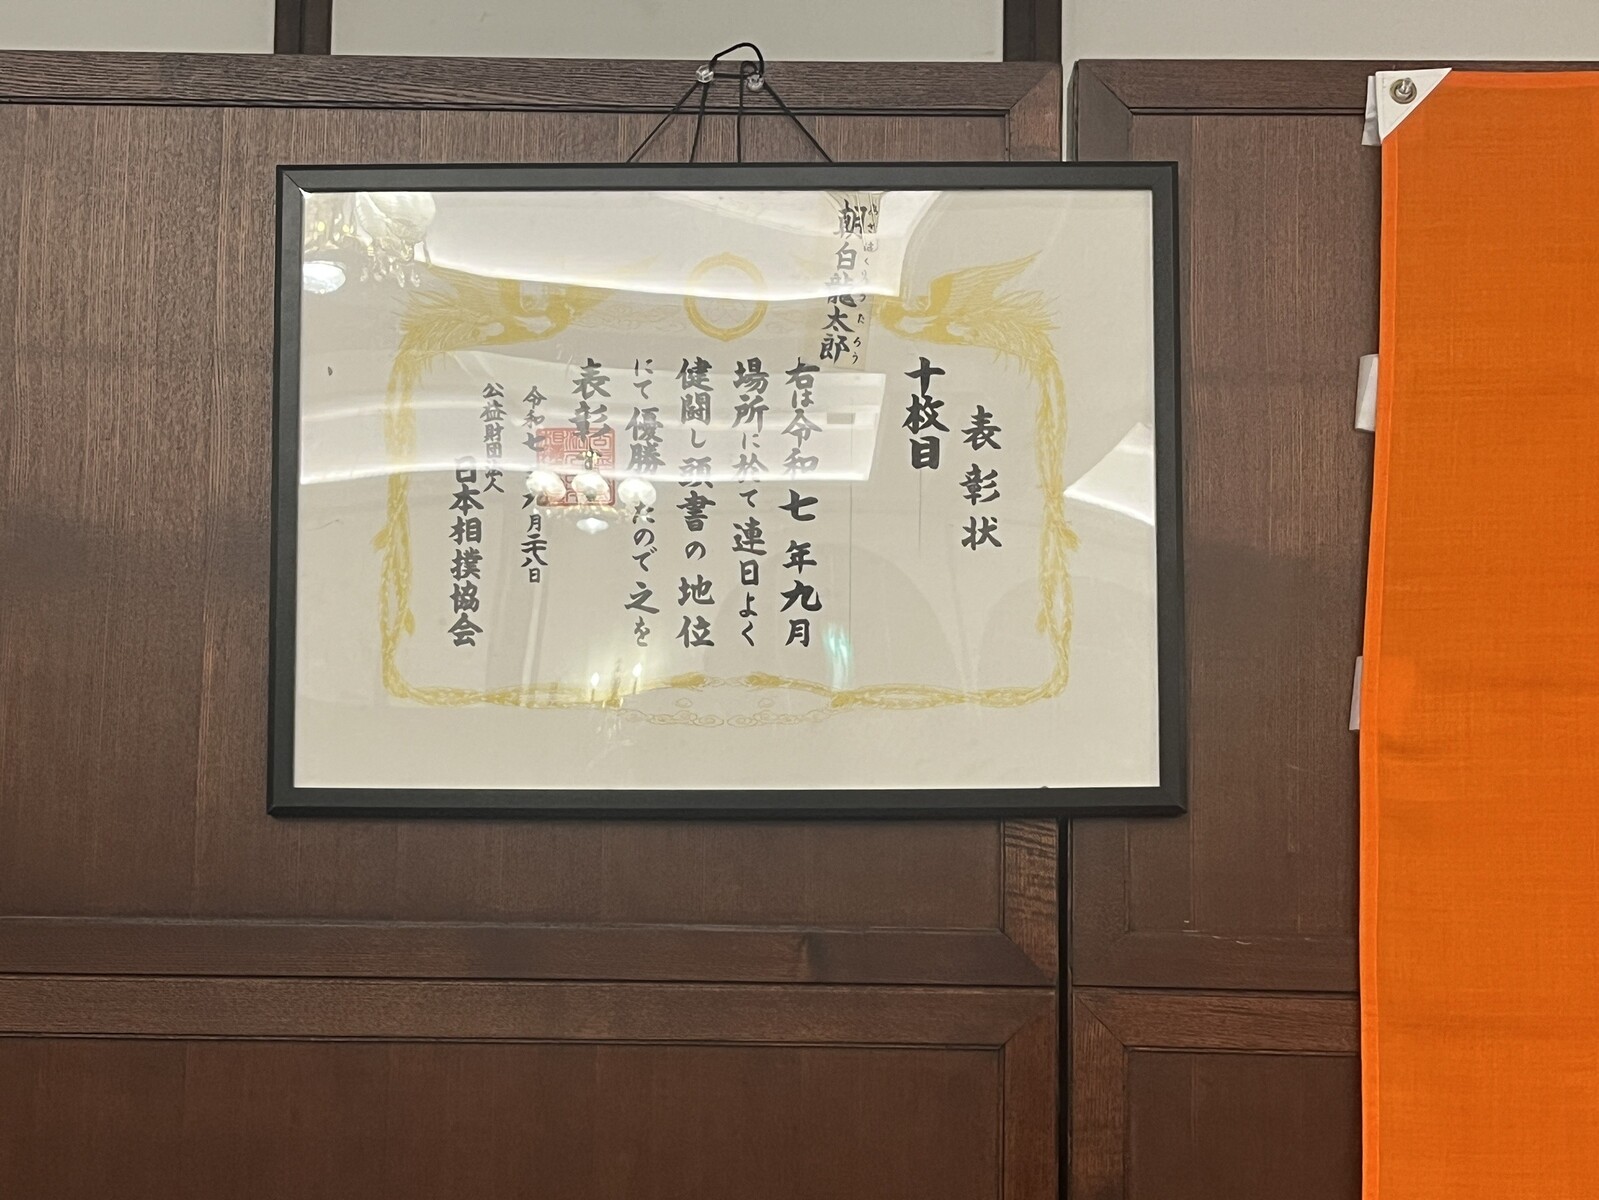 表彰状
十枚目
朝白龍太郎
右は令和七年九月
場所に於て連日よく
健闘し頭書の地位
にて優勝したので之を
表彰す
令和七年九月二十八日
公益財団法人
日本相撲協会